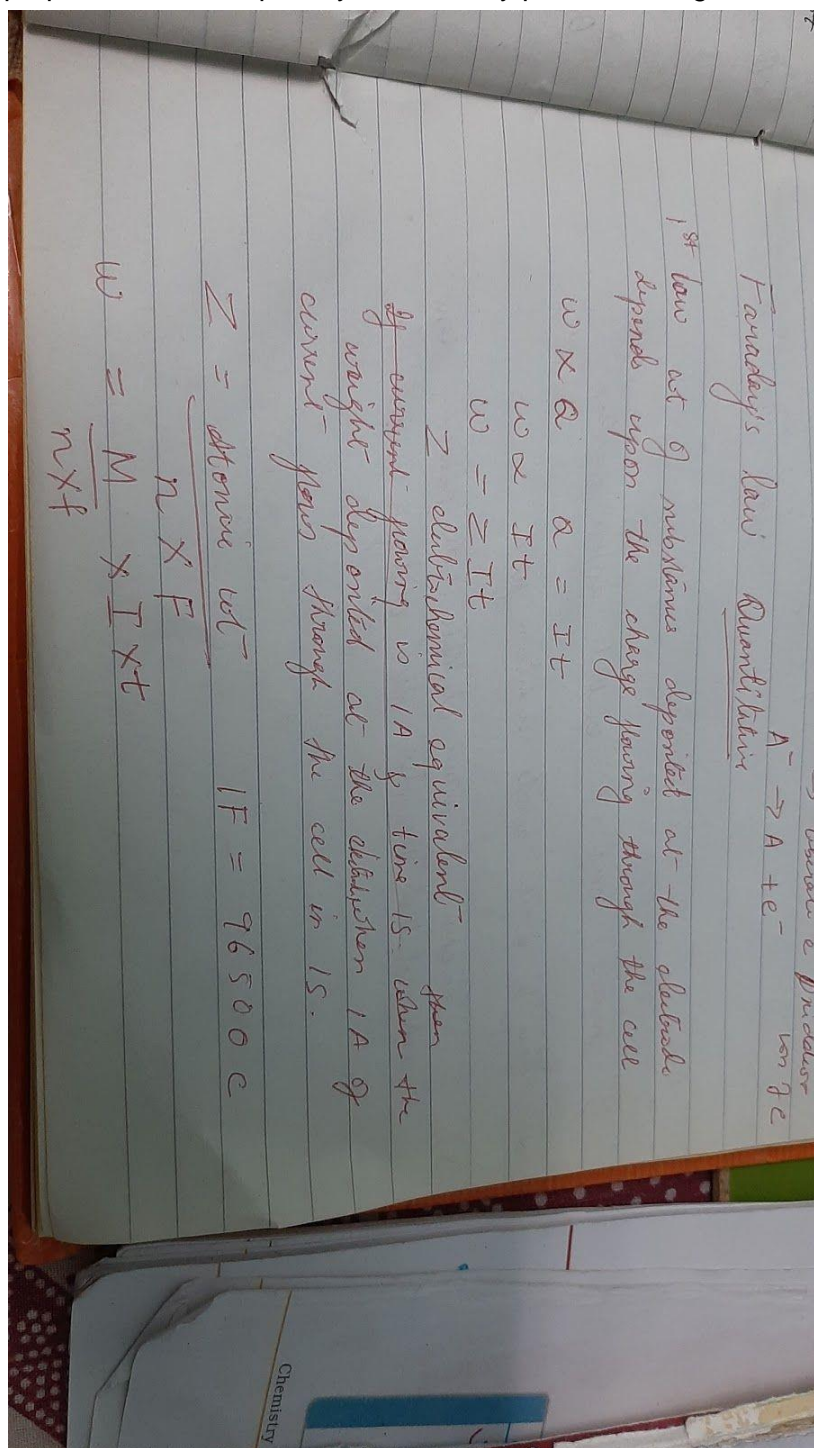 A⁻ → A + e⁻
Faraday's law Quantitative
1st law wt of substance deposited at the electrode
depends upon the charge flowing through the cell
w ∝ Q Q = It
w ∝ It
w = Z It
Z electrochemical equivalent then
If current flowing is 1A & time 1S. when the
weight deposited at the when 1A of
current flows through the cell in 1S.
Z = Atomic wt 1F = 96500 C
n x F
w = M x I x t
n x f
Chemistry